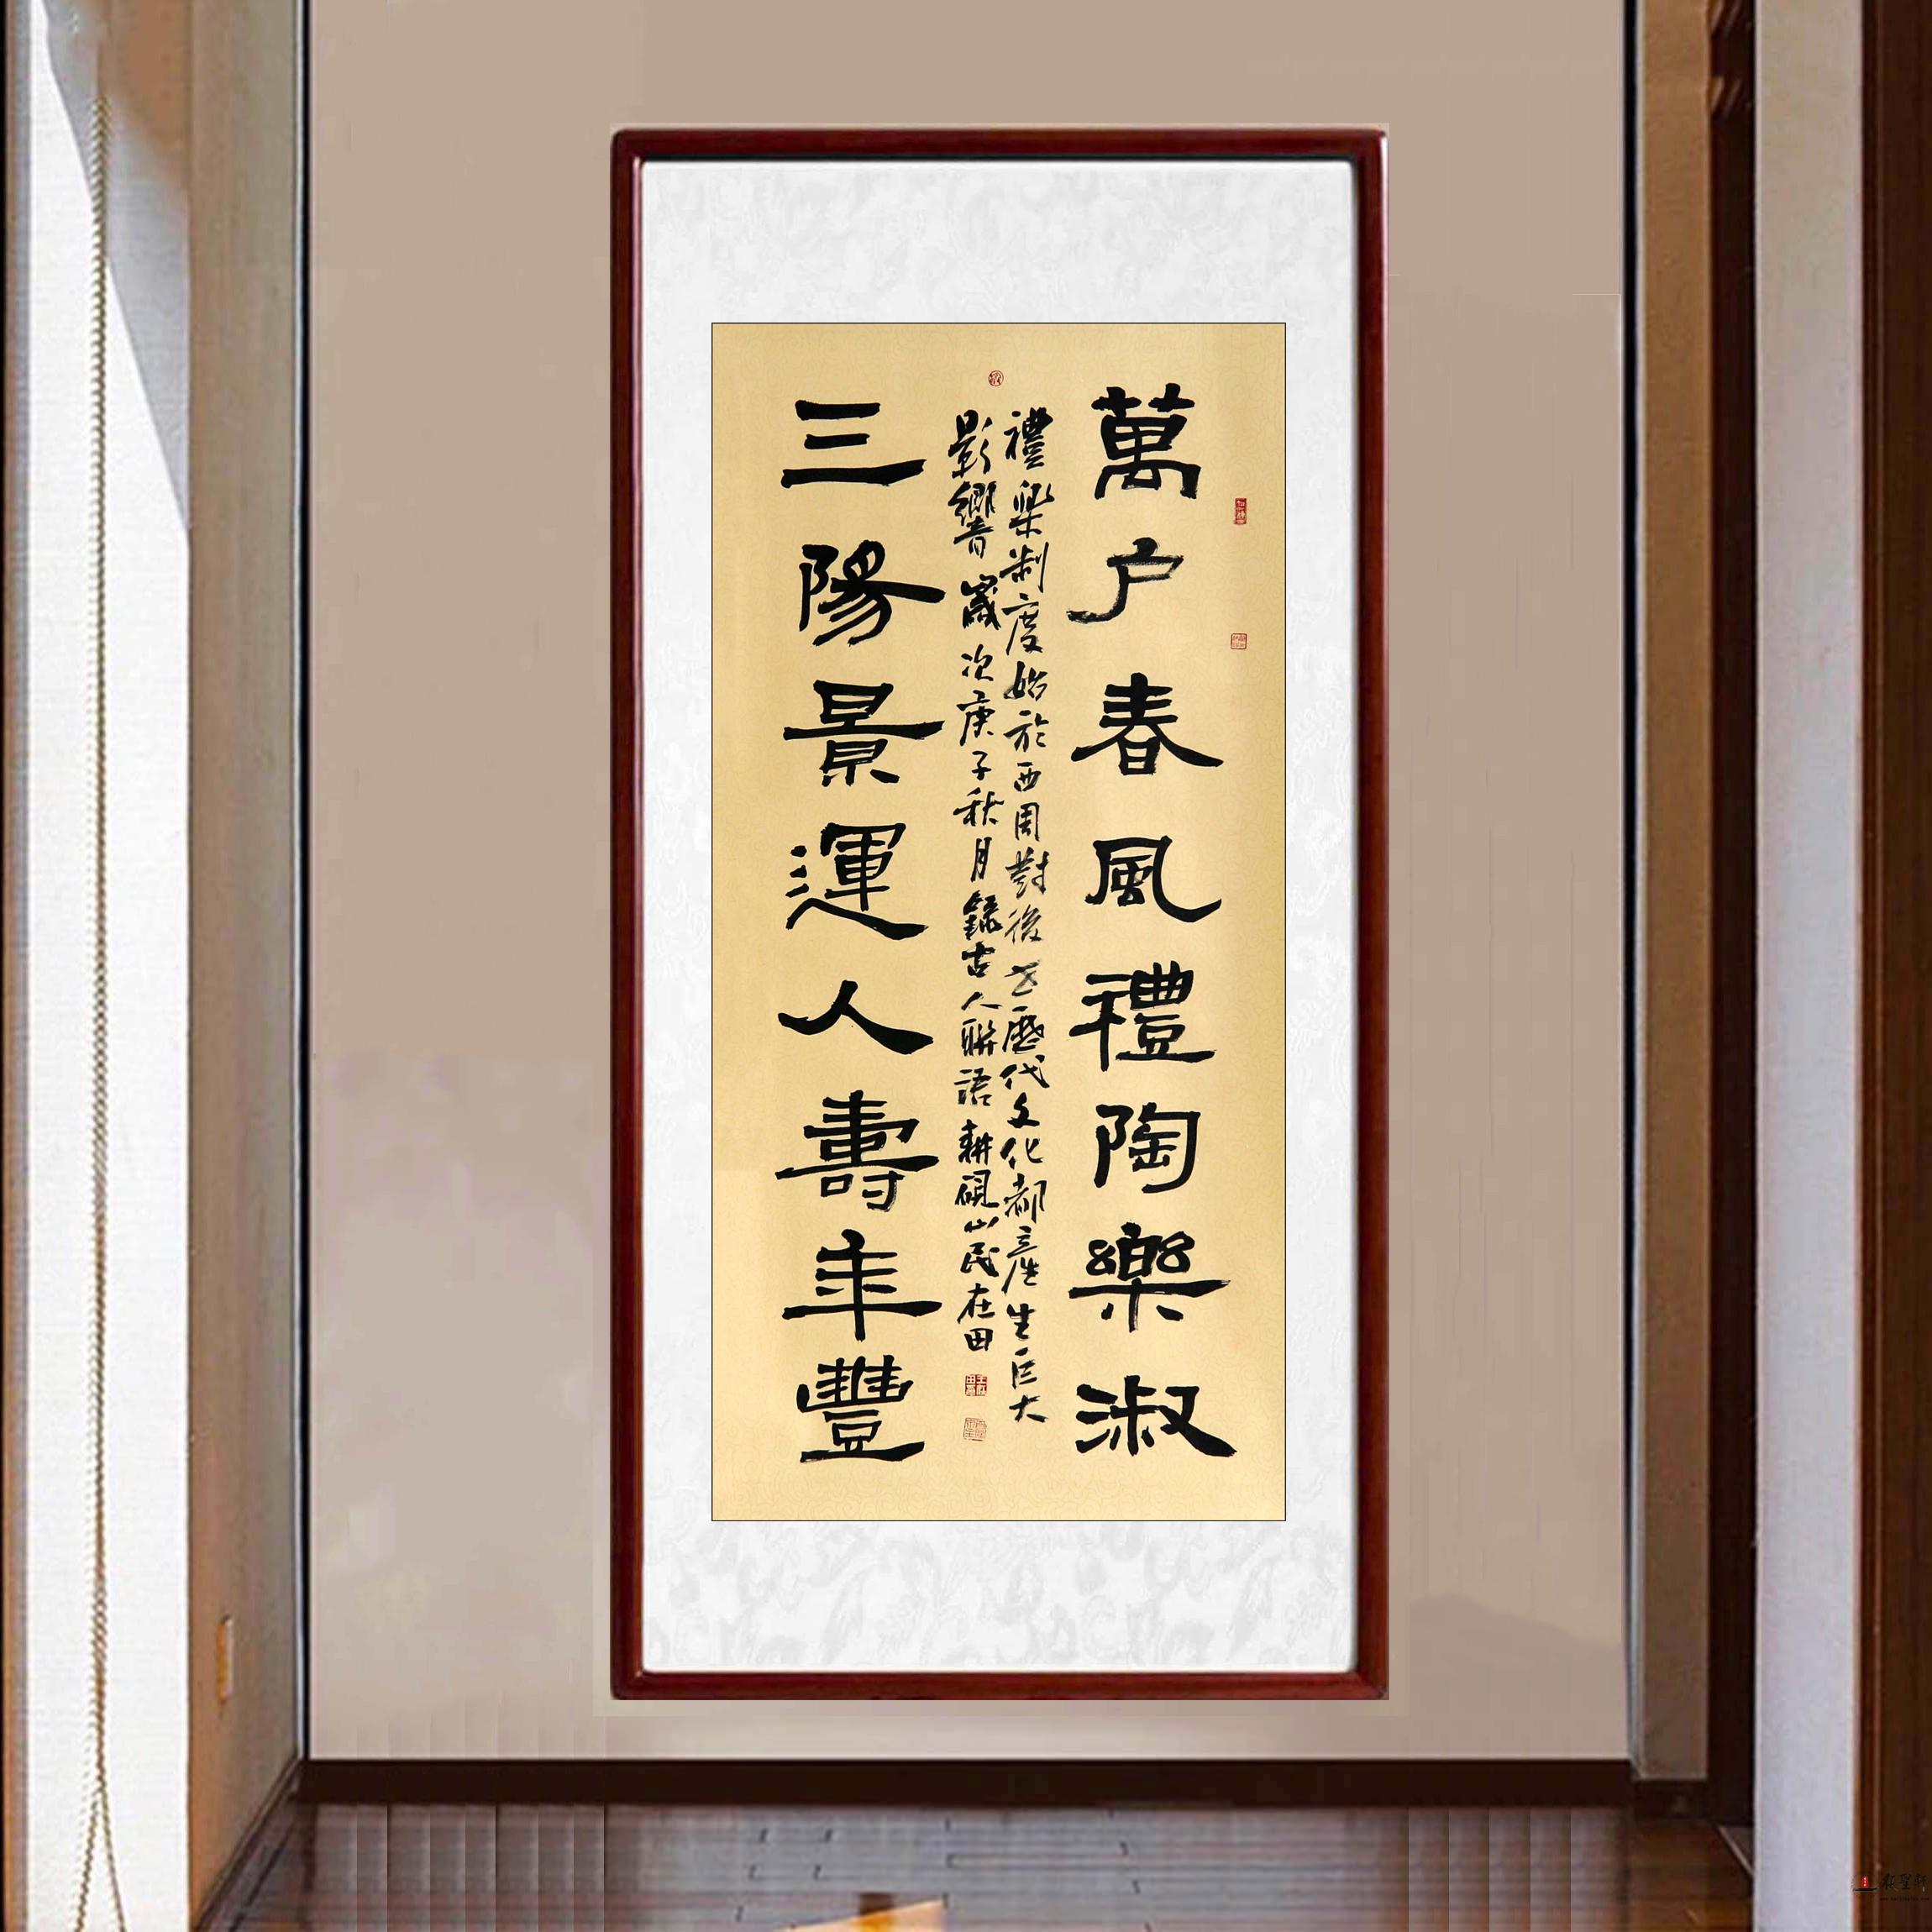 萬户春風禮陶樂淑
禮樂制度始於西周對後世歷代文化都産生巨大
影響歲次庚子秋月錄古人聯語耕硯山民在田
三陽景運人壽年豐